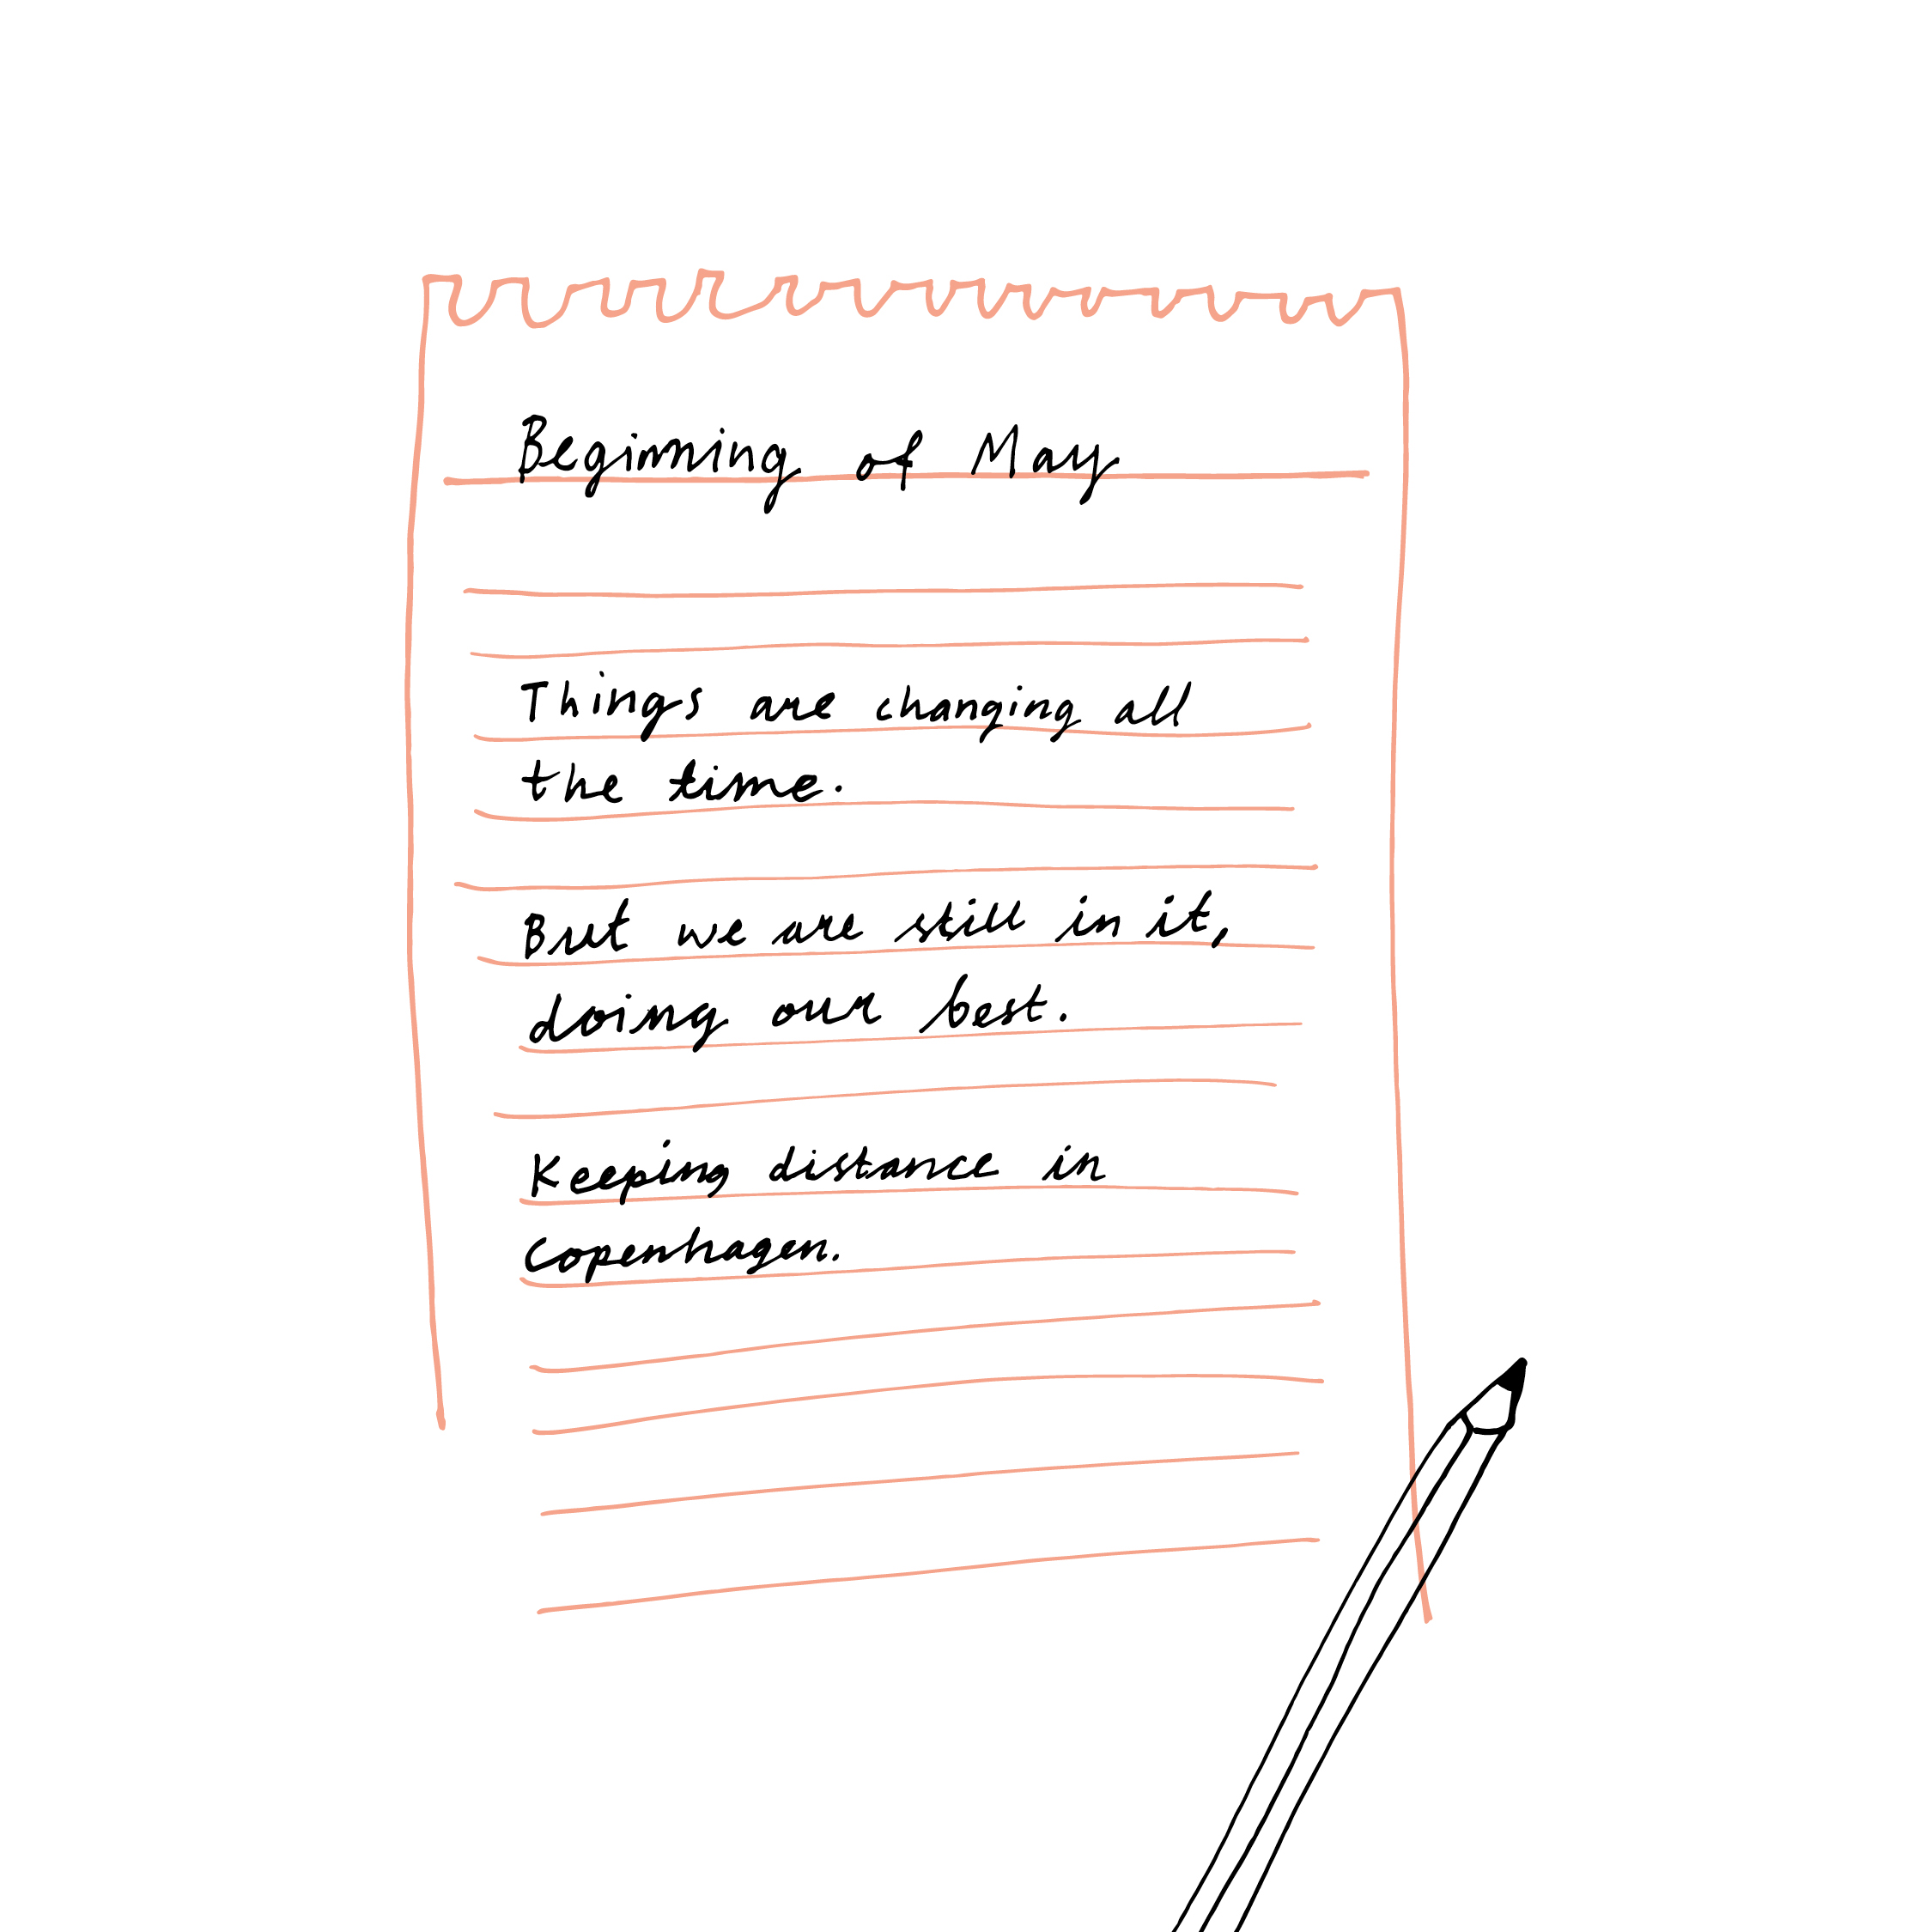 Begining of May
Things are changing all
the time.
But we are still in it,
doing our best.
Keeping distance in
Copenhagen.